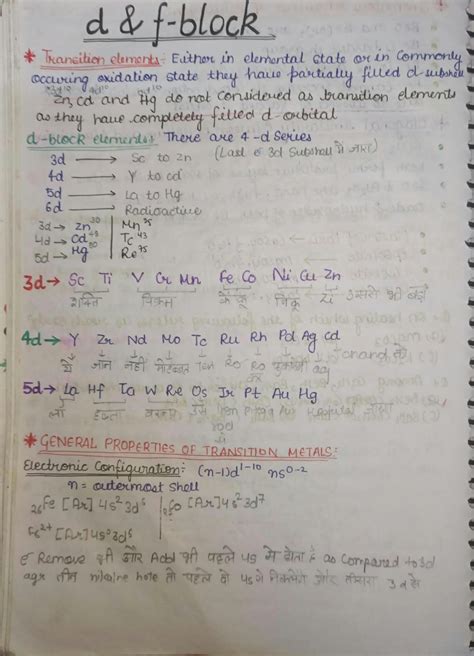 d & f-block
* Transition elements: Either in elemental state or in Commonly
occuring oxidation state they have partially filled d-subshell
Zn, Cd and Hg do not considered as transition elements
as they have completely filled d-orbital
d-block elements: There are 4-d Series
3d → Sc to Zn (Last e 3d Subshell में जाए)
4d → Y to Cd
5d → La to Hg
6d → Radioactive
3d → Zn³⁰ | Mn²⁵
4d → Cd⁴⁸ | Tc⁴³
5d → Hg⁸⁰ | Re⁷⁵
3d → Sc Ti V Cr Mn Fe Co Ni Cu Zn
शक्ति विक्रम
4d → Y Zr Nd Mo Tc Ru Rh Pd Ag Cd
ये जॉन नही
5d → La Hf Ta W Re Os Ir Pt Au Hg
ला
* GENERAL PROPERTIES OF TRANSITION METALS:
Electronic Configuration: (n-1)d¹⁻¹⁰ ns⁰⁻²
n = outermost shell
₂₆Fe [Ar] 4s² 3d⁶ Co [Ar] 4s² 3d⁷
Fe²⁺ [Ar] 4s⁰ 3d⁶
e⁻ Remove भी और Add भी पहले 4s से होता है as compared to 3d
agr तीन nikalne hote तो पहले दो 4s से निकलेंगे और तीसरा 3d से